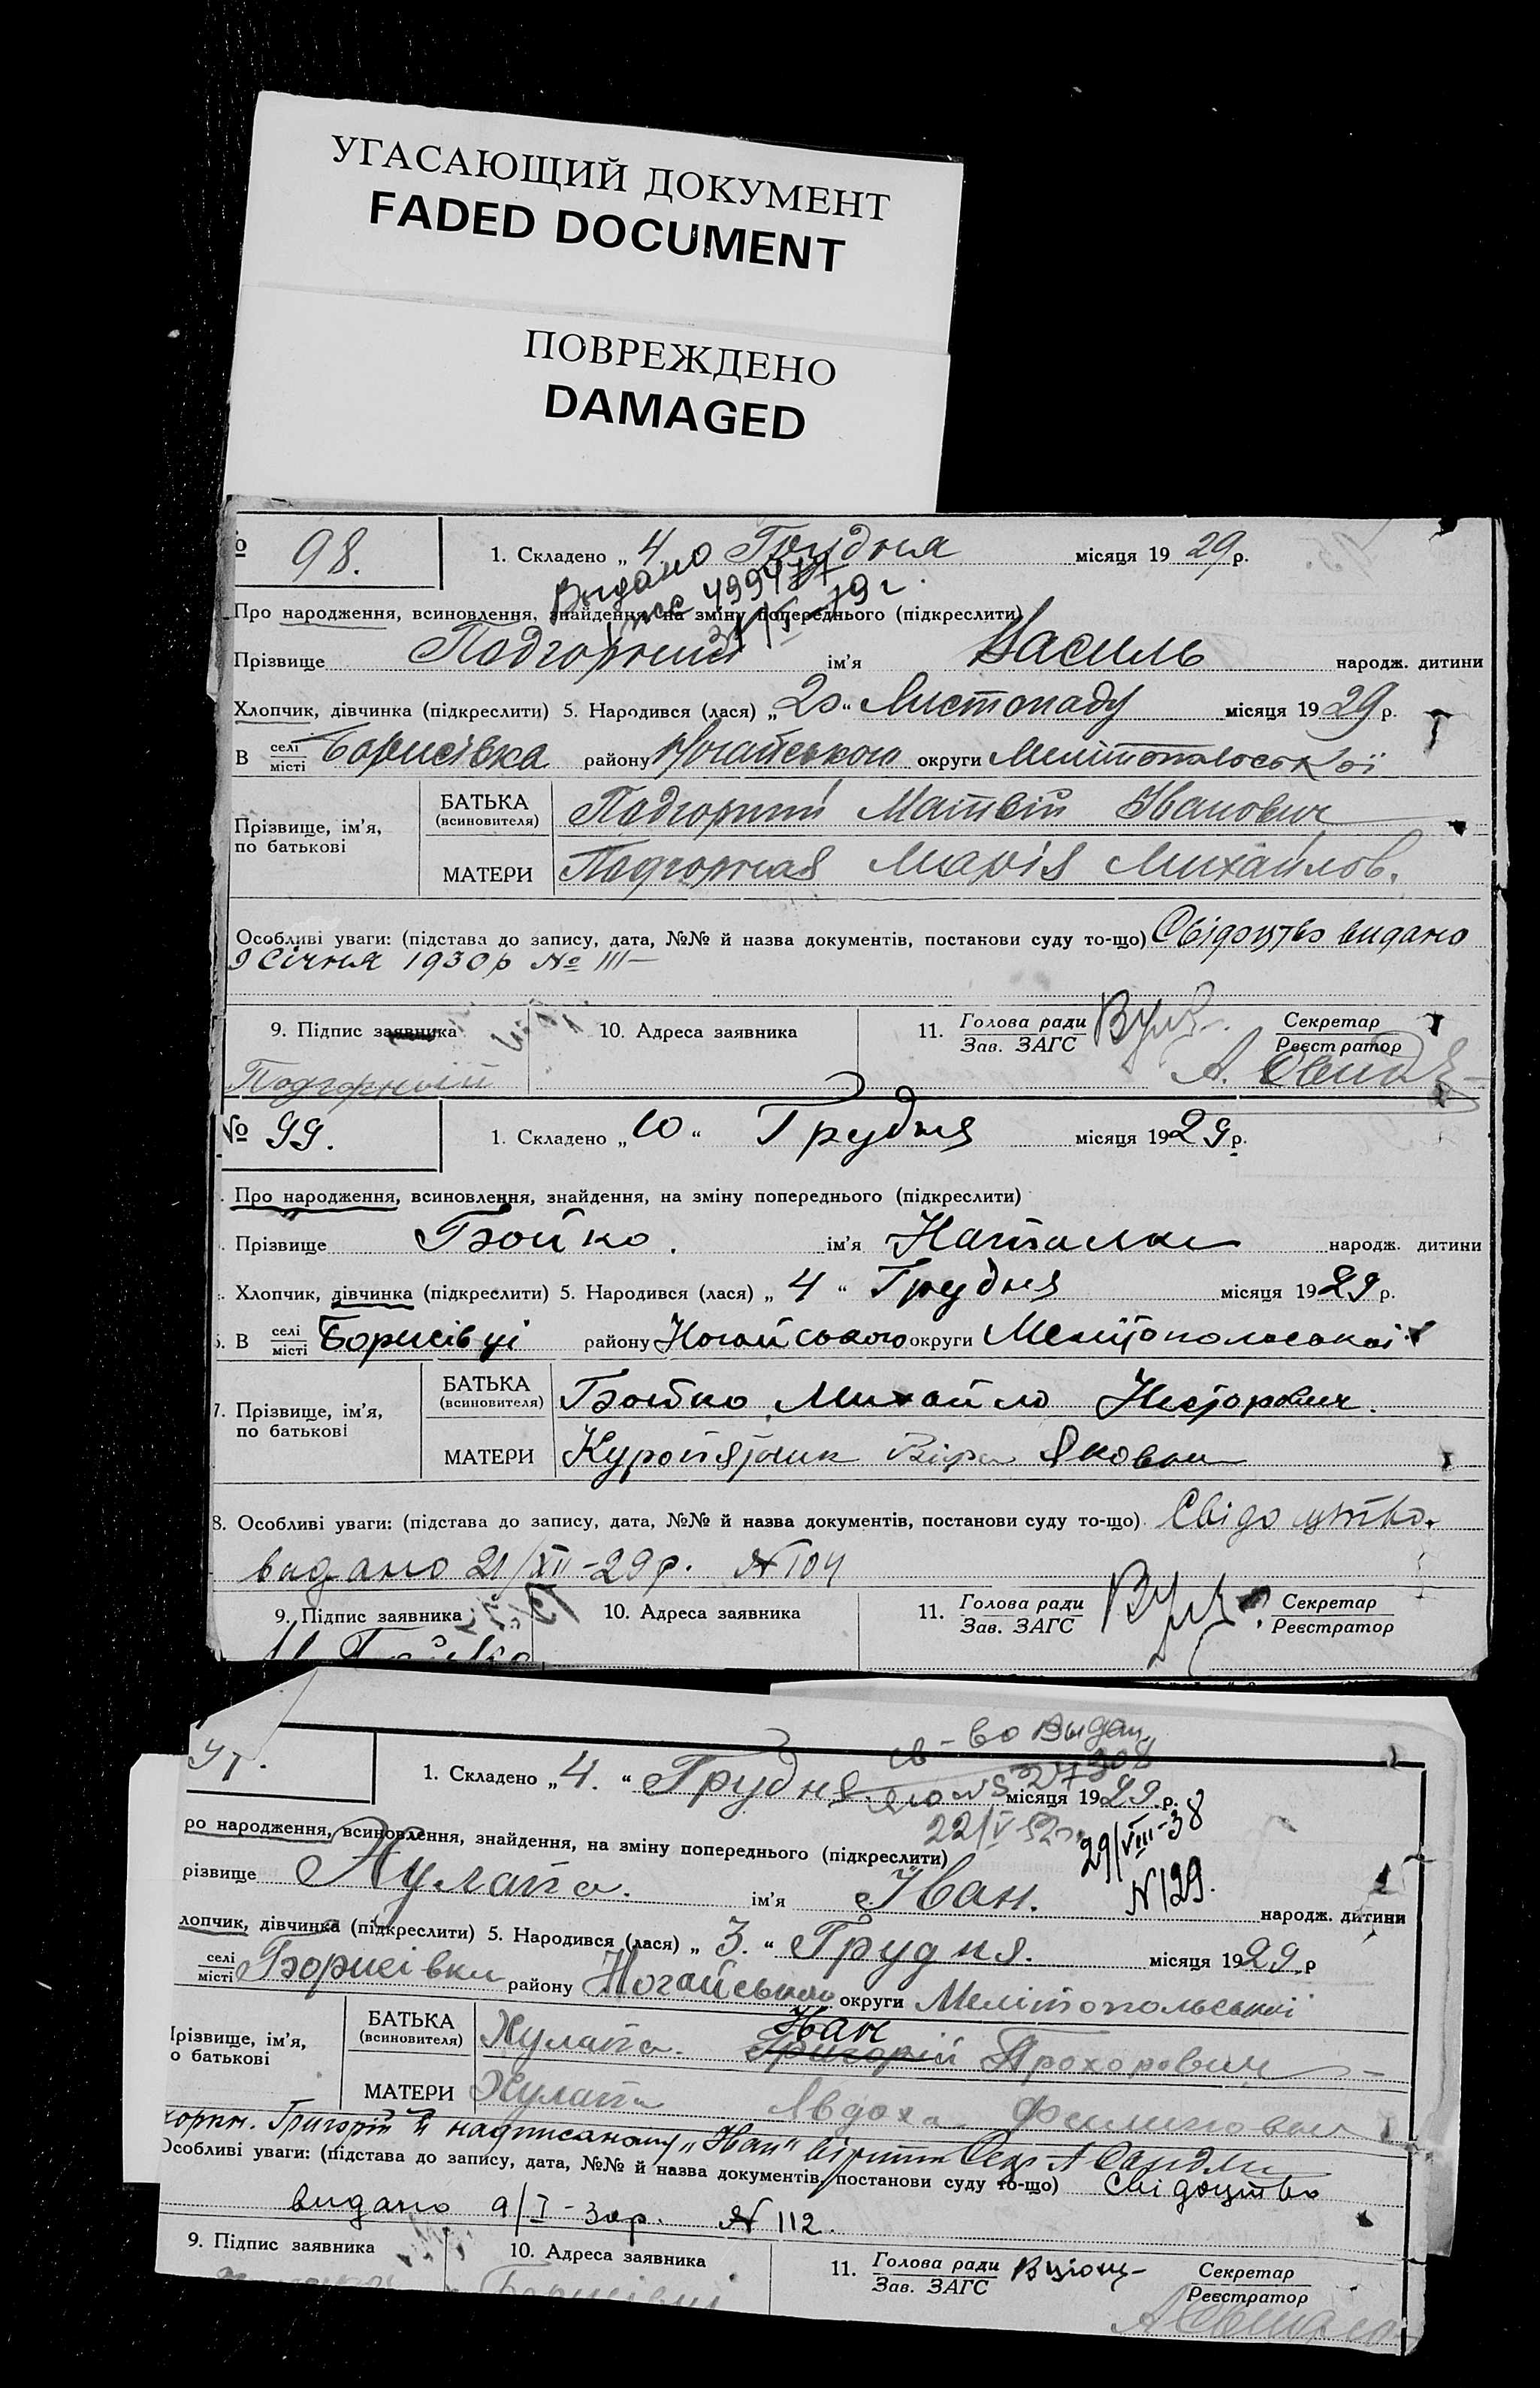 УГАСАЮЩИЙ ДОКУМЕНТ
FADED DOCUMENT
ПОВРЕЖДЕНО
DAMAGED
98.
1. Складено „4 Грудня місяця 1929р.
Видано
499477
Про народження, всиновлення, знайдення, на зміну попереднього (підкреслити)
Прізвище Подгорний ім'я Василь народж. дитини
Хлопчик, дівчинка (підкреслити) 5. Народився (лася) „20“ Листопаду місяця 1929 р.
В селі місті Борисівка району Ногайського округи Мелітопольської
Прізвище, ім'я, по батькові
БАТЬКА (всиновителя) Подгорний Матвій Іванович
МАТЕРИ Подгорная Марія Михайлов.
Особливі уваги: (підстава до запису, дата, №№ й назва документів, постанови суду то-що) Свідоцтво видано
9 Січня 1930р № 111
9. Підпис заявника 10. Адреса заявника 11. Голова ради Зав. ЗАГС Секретар Реєстратор
Подгорный
№ 99. 1. Складено „10“ Грудня місяця 1929р.
Про народження, всиновлення, знайдення, на зміну попереднього (підкреслити)
Прізвище Бойко. ім'я Наталка народж. дитини
Хлопчик, дівчинка (підкреслити) 5. Народився (лася) „4“ Грудня місяця 1929 р.
5. В селі місті Борисівці району Ногайського округи Мелітопольської
7. Прізвище, ім'я, по батькові
БАТЬКА (всиновителя) Бойко Михайло Несторович.
МАТЕРИ Куропятник Віра Яковна
8. Особливі уваги: (підстава до запису, дата, №№ й назва документів, постанови суду то-що) Свідоцтво.
видано 21/XII-29р. №104
9. Підпис заявника 10. Адреса заявника 11. Голова ради Зав. ЗАГС Секретар Реєстратор
св-во Выдан
1. Складено „4.“ Грудня місяця 1929.р.
22/V-52г.
29/VIII-38
ро народження, всиновлення, знайдення, на зміну попереднього (підкреслити)
N129.
різвище Кулапа. ім'я Іван. народж. дитини
лопчик, дівчинка (підкреслити) 5. Народився (лася) „3.“ Грудня. місяця 1929.р
селі місті Борисівки району Ногайського округи Мелітопольської
Прізвище, ім'я, о батькові
Іван
БАТЬКА (всиновителя) Кулапа. Григорій Прохорович
МАТЕРИ Кулапа Явдоха Филиповна
Григорій й надписаному „Иван“ вірити
Особливі уваги: (підстава до запису, дата, №№ й назва документів, постанови суду то-що) Свідоцтво
видано 9/I-30р. №112.
9. Підпис заявника 10. Адреса заявника 11. Голова ради Зав. ЗАГС Секретар Реєстратор